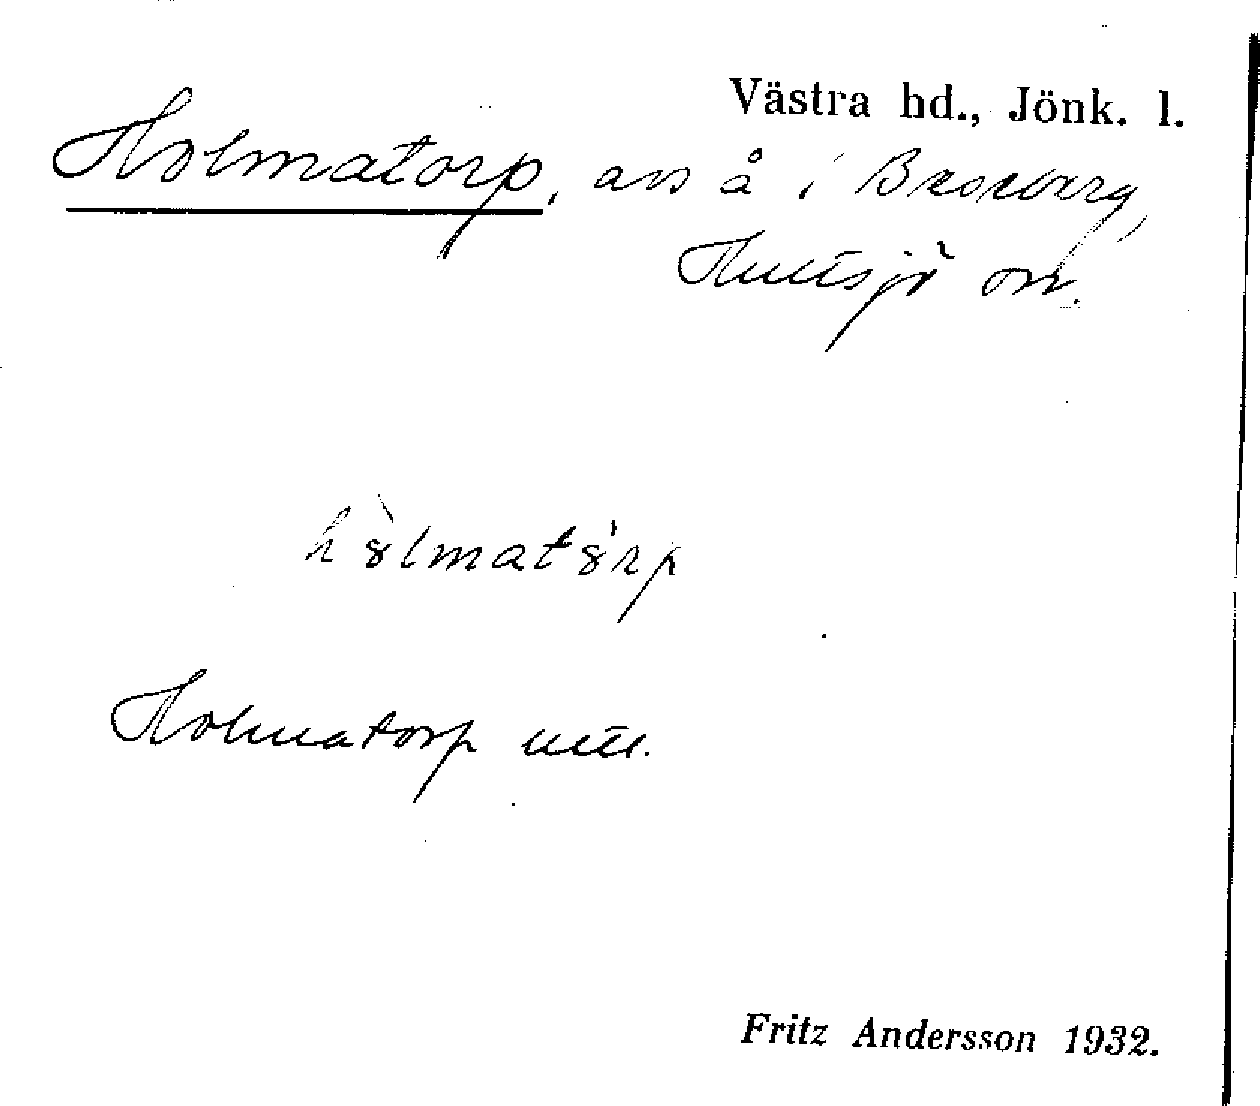 Västra hd., Jönk. l.
Holmatorp, avs å i Broberg,
Hultsjö sn.
hòlmatórp
Holmatorp utt.
Fritz Andersson 1932.